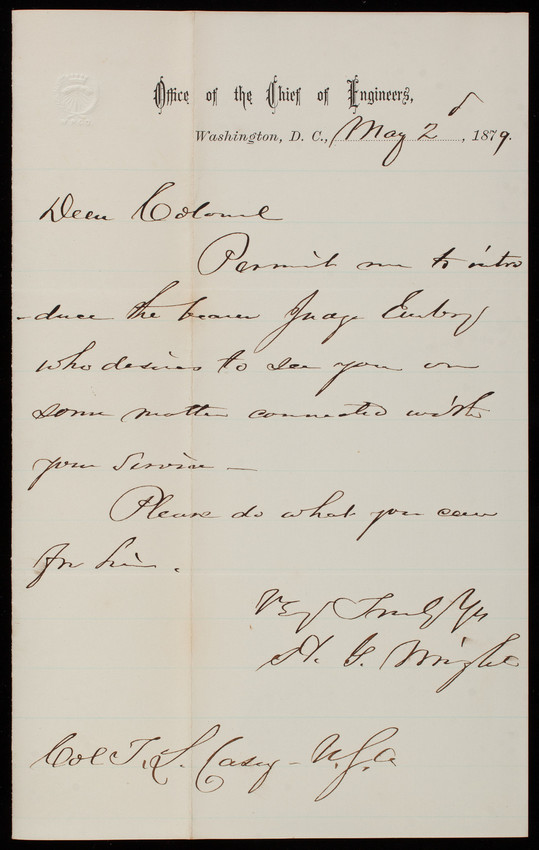 Office of the Chief of Engineers,
Washington, D. C., May 2d, 1879.
Dear Colonel
Permit me to intro
-duce the bearer Judge Embry
who desires to see you on
some matter connected with
your service –
Please do what you can
for him.
Very Truly Yrs
H. G. Wright
Col T. L. Casey – U.S.A